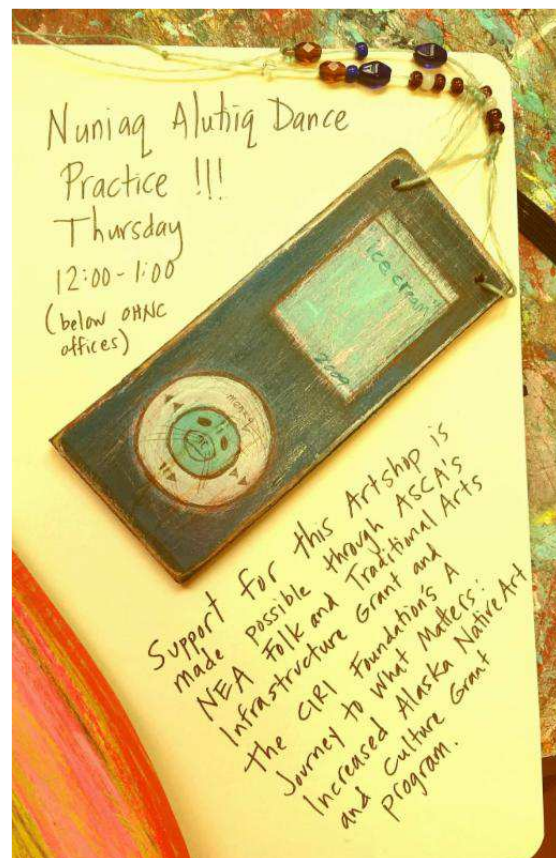 Nuniaq Alutiiq Dance
Practice !!!
Thursday
12:00-1:00
(below OHNC
offices)
ice cream
2000
money
Support for this Artshop is
made possible through ASCA's
NEA Folk and Traditional Arts
Infrastructure Grant and
the CIRI Foundation's A
Journey to What Matters:
Increased Alaska Native Art
and Culture Grant
program.